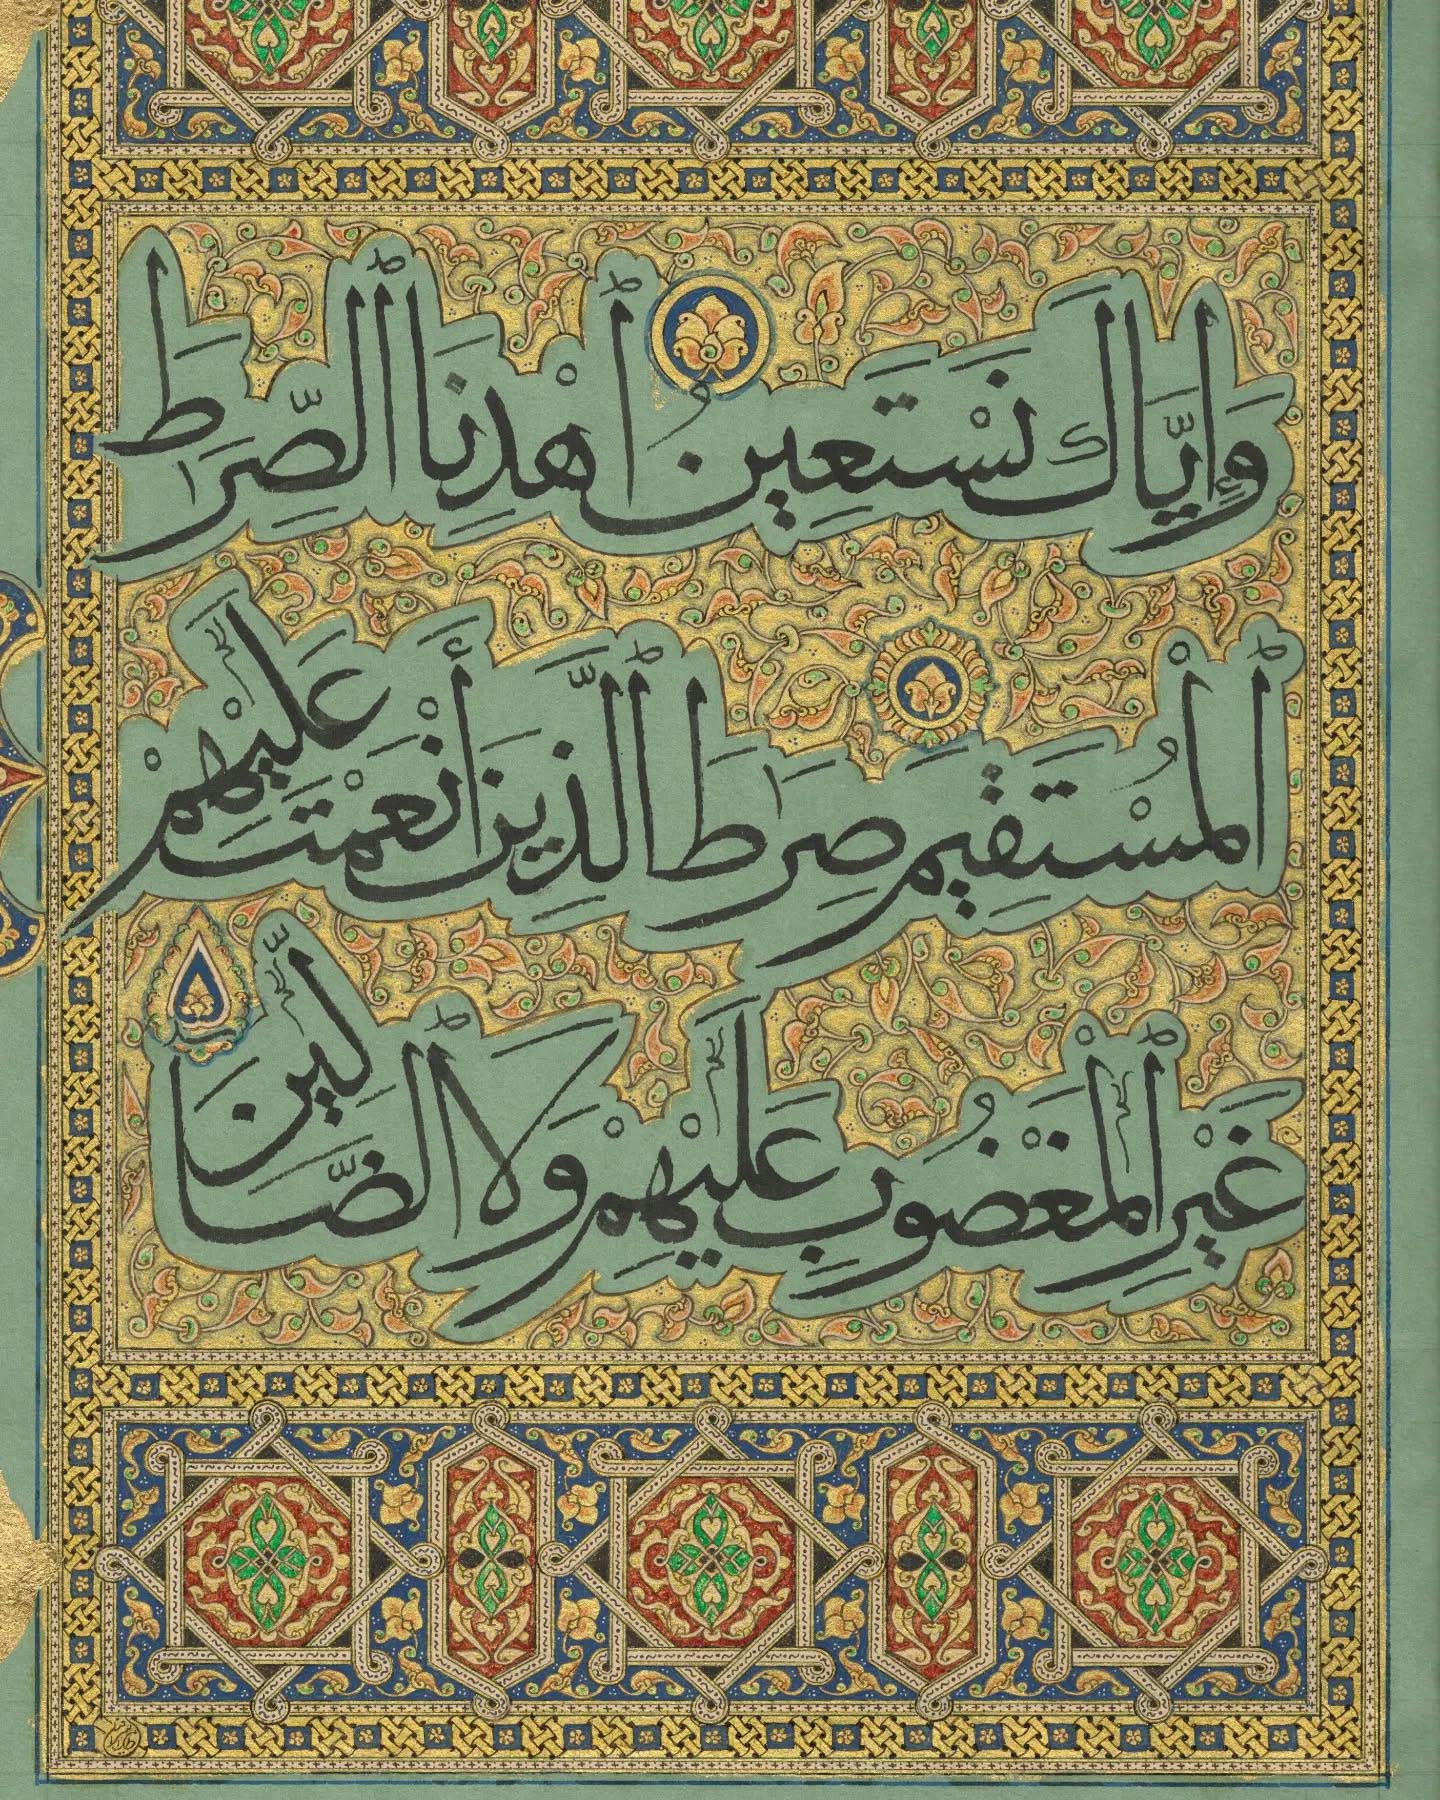 وَإِيَّاكَ نَسْتَعِينُ ٱهْدِنَا ٱلصِّرَٰطَ
ٱلْمُسْتَقِيمَ صِرَٰطَ ٱلَّذِينَ أَنْعَمْتَ عَلَيْهِمْ
غَيْرِ ٱلْمَغْضُوبِ عَلَيْهِمْ وَلَا ٱلضَّالِّينَ